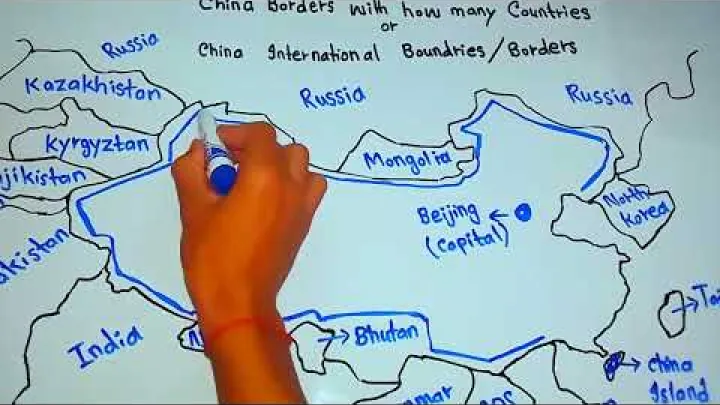 China Borders with how many Countries
or
China International Boundries/Borders
Russia
Kazakhistan
Russia
Russia
Kyrgyztan
Mongolia
jikistan
North
Korea
Beijing
(Capital)
akistan
Tai
India
N
Bhutan
China
Island
mar